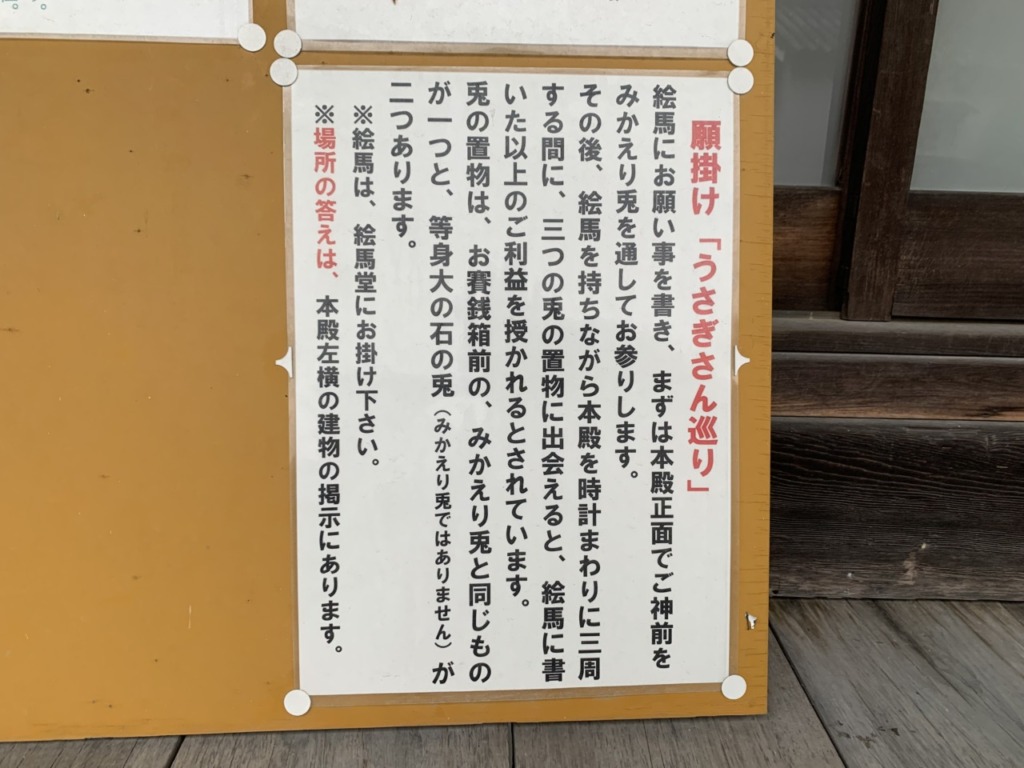 願掛け「うさぎさん巡り」
絵馬にお願い事を書き、まずは本殿正面でご神前を
みかえり兎を通してお参りします。
その後、絵馬を持ちながら本殿を時計まわりに三周
する間に、三つの兎の置物に出会えると、絵馬に書
いた以上のご利益を授かれるとされています。
兎の置物は、お賽銭箱前の、みかえり兎と同じもの
が一つと、等身大の石の兎（みかえり兎ではありません）が
二つあります。
※絵馬は、絵馬堂にお掛け下さい。
※場所の答えは、本殿左横の建物の掲示にあります。